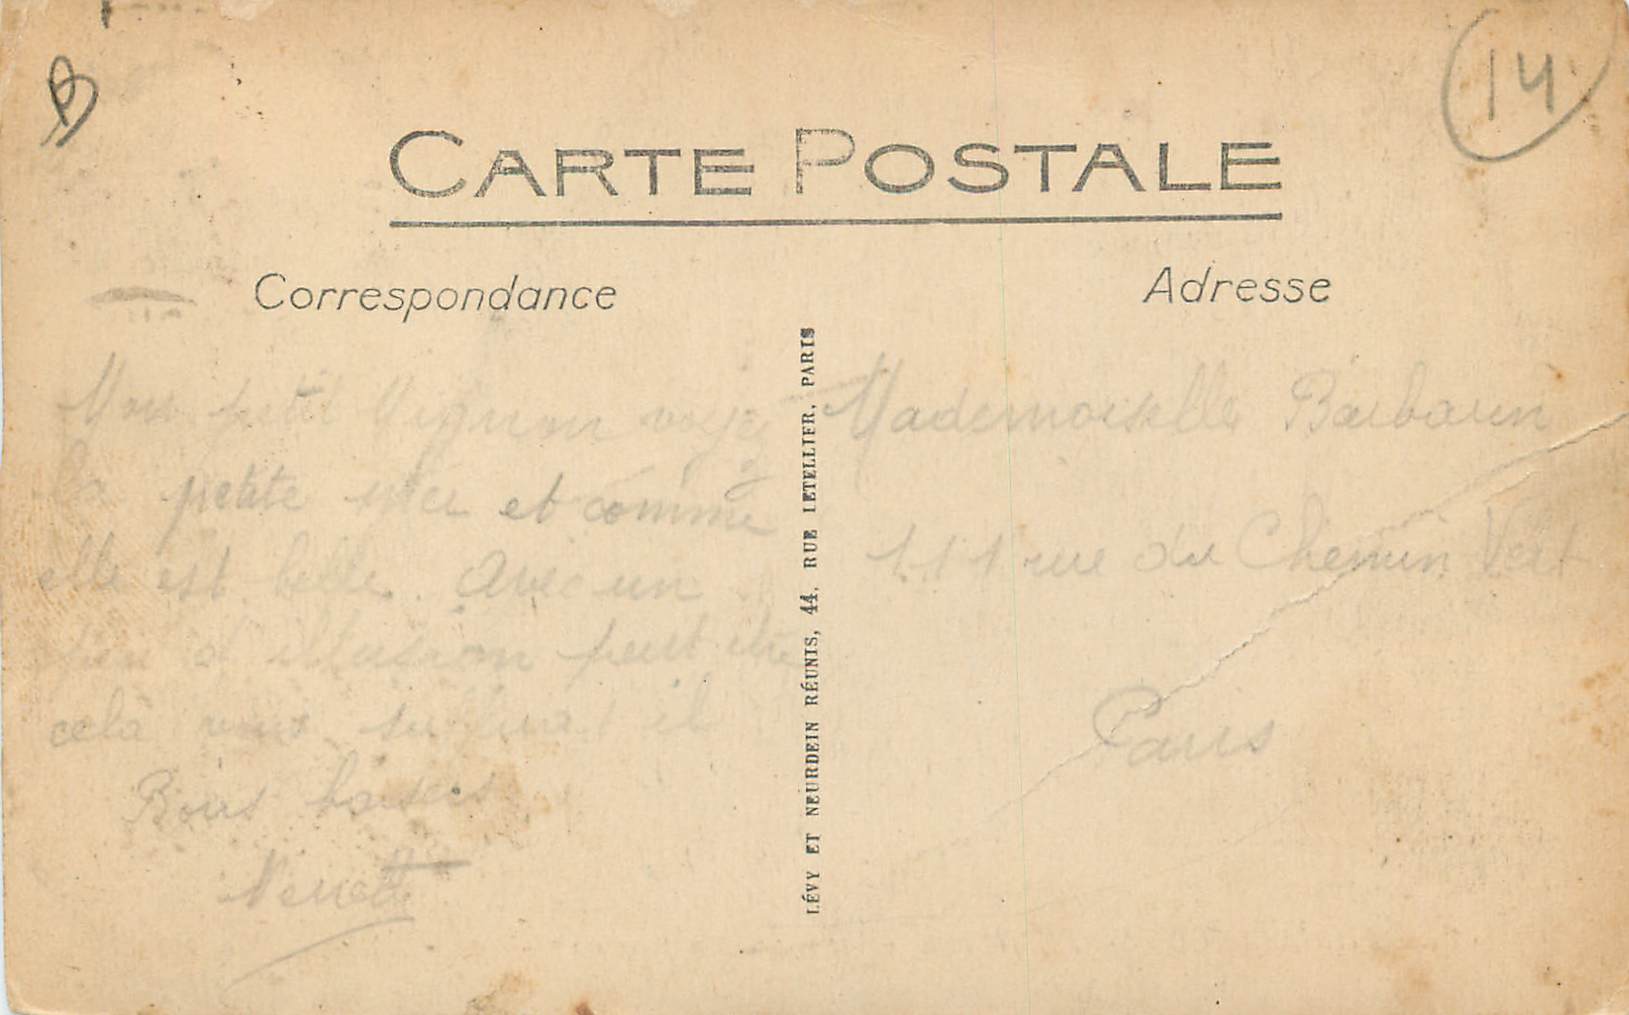 14
CARTE POSTALE
Correspondance
Adresse
Mon petit Mignon voyez
la petite mer et comme
elle est belle. Avec un
peu d'illusion peut être
celà vous suffirait il
Bons baisers
Nenette
LÉVY ET NEURDEIN RÉUNIS, 44, RUE LETELLIER, PARIS
Mademoiselle Barbarin
111 rue du Chemin Vert
Paris